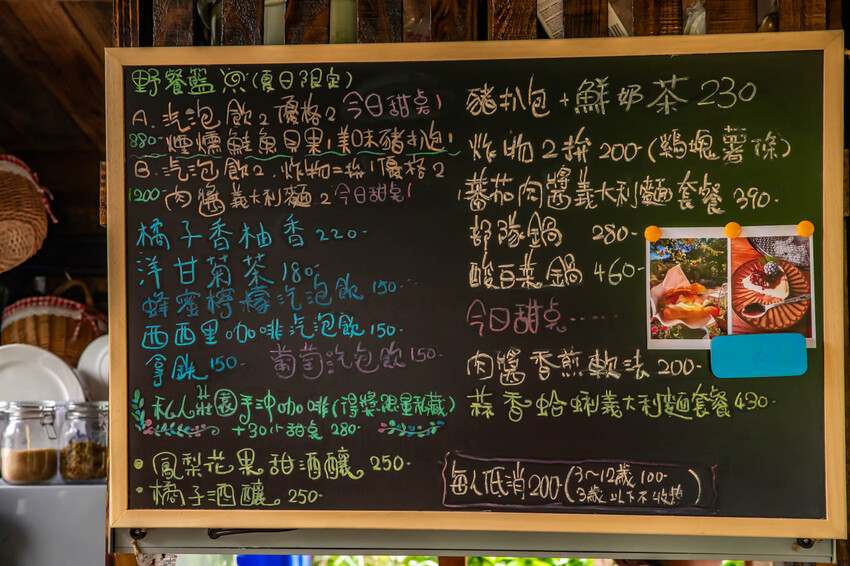 野餐籃 (夏日限定)
A. 汽泡飲2 優格2 今日甜桌1
880- 煙燻鮭魚貝果1美味豬扒包1
B. 汽泡飲2. 炸物=拚1優格2
1200 肉醬義大利麵2 今日甜桌1
橘子香柚香 220-
洋甘菊茶 180-
蜂蜜檸檬汽泡飲 150-
西西里咖啡汽泡飲 150-
拿鉄 150- 葡萄汽泡飲 150-
私人莊園手沖咖啡(得獎限量私藏)
+30小甜桌 280-
• 鳳梨花果甜酒釀 250-
• 橘子洒釀 250-
豬扒包 + 鮮奶茶 230
炸物2拚 200-(鷄塊薯條)
蕃茄肉醬義大利麵套餐 390-
部隊鍋 280-
酸白菜鍋 460-
今日甜桌......
肉醬香煎軟法 200-
蒜香蛤蜊義大利麵套餐 430-
每人低消200(3~12歲 100-
3歲以下不收費)